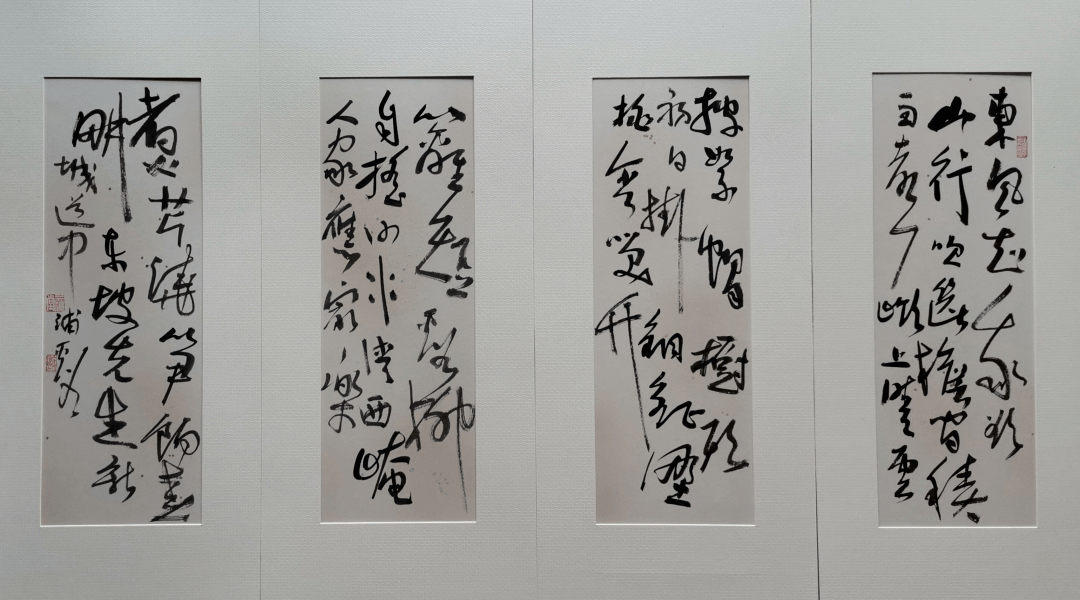 東風知我欲
山行吹斷簷間積
雨聲嶺上晴雲
披絮帽樹頭
初日掛銅鉦野
桃含笑竹
籬短溪柳
自搖沙水清西崦
人家應最樂
煮芹燒筍餉春
耕東坡先生新
城道中